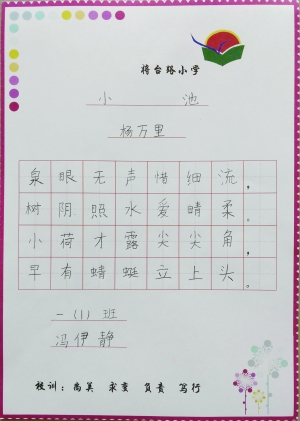 将台路小学
小 池
杨万里
泉眼无声惜细流，
树阴照水爱晴柔。
小荷才露尖尖角，
早有蜻蜓立上头。
一（1）班
冯伊静
校训：尚美 求变 负责 笃行